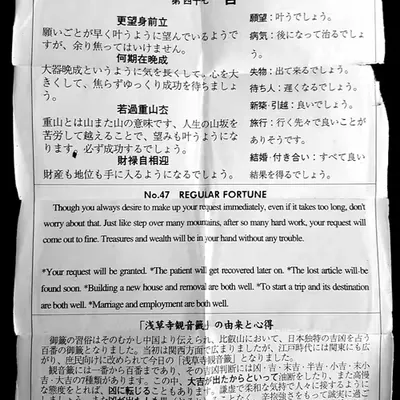 第四十七 吉
更望身前立
願いごとが早く叶うように望んでいるようで
すが、余り焦ってはいけません。
何期在晩成
大器晩成というように気を長くして、心を大
きくして、焦らずゆっくり成功を待ちましょ
う。
若過重山去
重山とは山また山の意味です、人生の山坂を
苦労して越えることで、望みも叶うようにな
ります。必ず成功するでしょう。
財禄自相迎
財産も地位も手に入るようになるでしょう。
願望：叶うでしょう。
病気：後になって治るでしょ
う。
失物：出て来るでしょう。
待ち人：遅くなるでしょう。
新築・引越：良いでしょう。
旅行：行く先々で良いことが
ありそうです。
結婚・付き合い：すべて良い
結果を得るでしょう。
No.47 REGULAR FORTUNE
Though you always desire to make up your request immediately, even if it takes too long, don't
worry about that. Just like step over many mountains, after so many hard work, your request will
come out to fine. Treasures and wealth will be in your hand without any trouble.
*Your request will be granted. *The patient will get recovered later on. *The lost article will be
found soon. *Building a new house and removal are both well. *To start a trip and its destination
are both well. *Marriage and employment are both well.
「浅草寺観音籤」の由来と心得
御籤の習俗はそのむかし中国より伝えられ、比叡山において、日本独特の吉凶を占う
百番の御籤となりました。当初は関西方面で広まりましたが、江戸時代には関東にも広
がり、庶民向けに改められて今日の「浅草寺観音籤」となりました。
観音籤には一番から百番まであり、その吉凶判断には凶・吉・末吉・半吉・小吉・末小
吉・大吉の7種類があります。この中、大吉が出たからといって油断をしたり、また高慢
な態度をとれば、凶に転じることもあります。謙虚で柔和な気持で人々に接するように